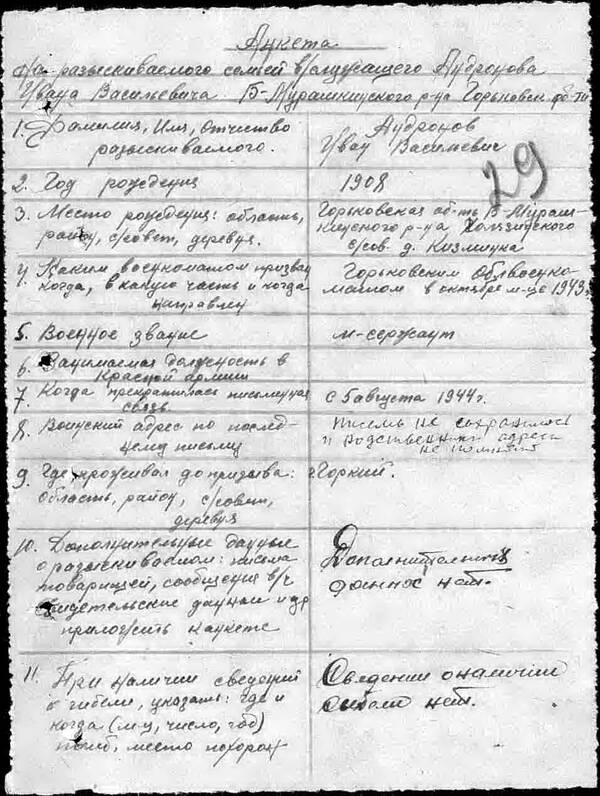 Анкета
На разыскиваемого семьей в/служащего Андронова
Ивана Васильевича В-Мурашкинского р-на Горьковск. об-ти
1. Фамилия, Имя, отчество Андронов
разыскиваемого. Иван Васильевич
29
2. Год рождения 1908
3. Место рождения: область, Горьковская об-ть В-Мураш-
район, с/совет, деревня. кинского р-на
с/сов. д.
4. Каким военкоматом призван Горьковским Облвоенко-
когда, в какую часть и когда матом в октябре м-це 1943г.
направлен
5. Военное звание м-сержант
6. Занимаемая должность в
Красной армии
7. Когда прекратилась письменная с 5 августа 1944г.
связь
8. Воинский адрес по послед- Письма не сохранилось
нему письму и родственники адреса
не помнят
9. Где проживал до призыва: г. Горький.
область, район, с/совет,
деревня
10. Дополнительные данные Дополнительных
о разыскиваемом: письма данное нет.
товарищей, сообщения в/ч
свидетельские данные и др
приложить к анкете
11. При наличии сведений Сведении о наличии
о гибели, указать: где и гибели нет.
когда (м-ц, число, год)
погиб, место похорон-